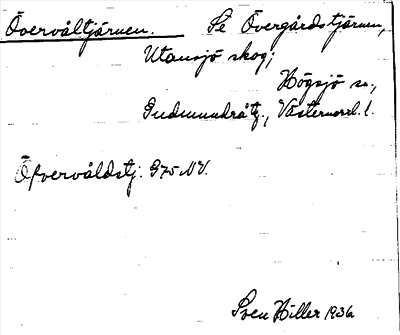 Övervåltjärnen. Se Övergårdstjärnen,
Utansjö skog;
Högsjö sn.,
Gudmundråtg., Västernorrl. l.
Öfvervåldstj. G75 NV.
Sven Hiller 1936